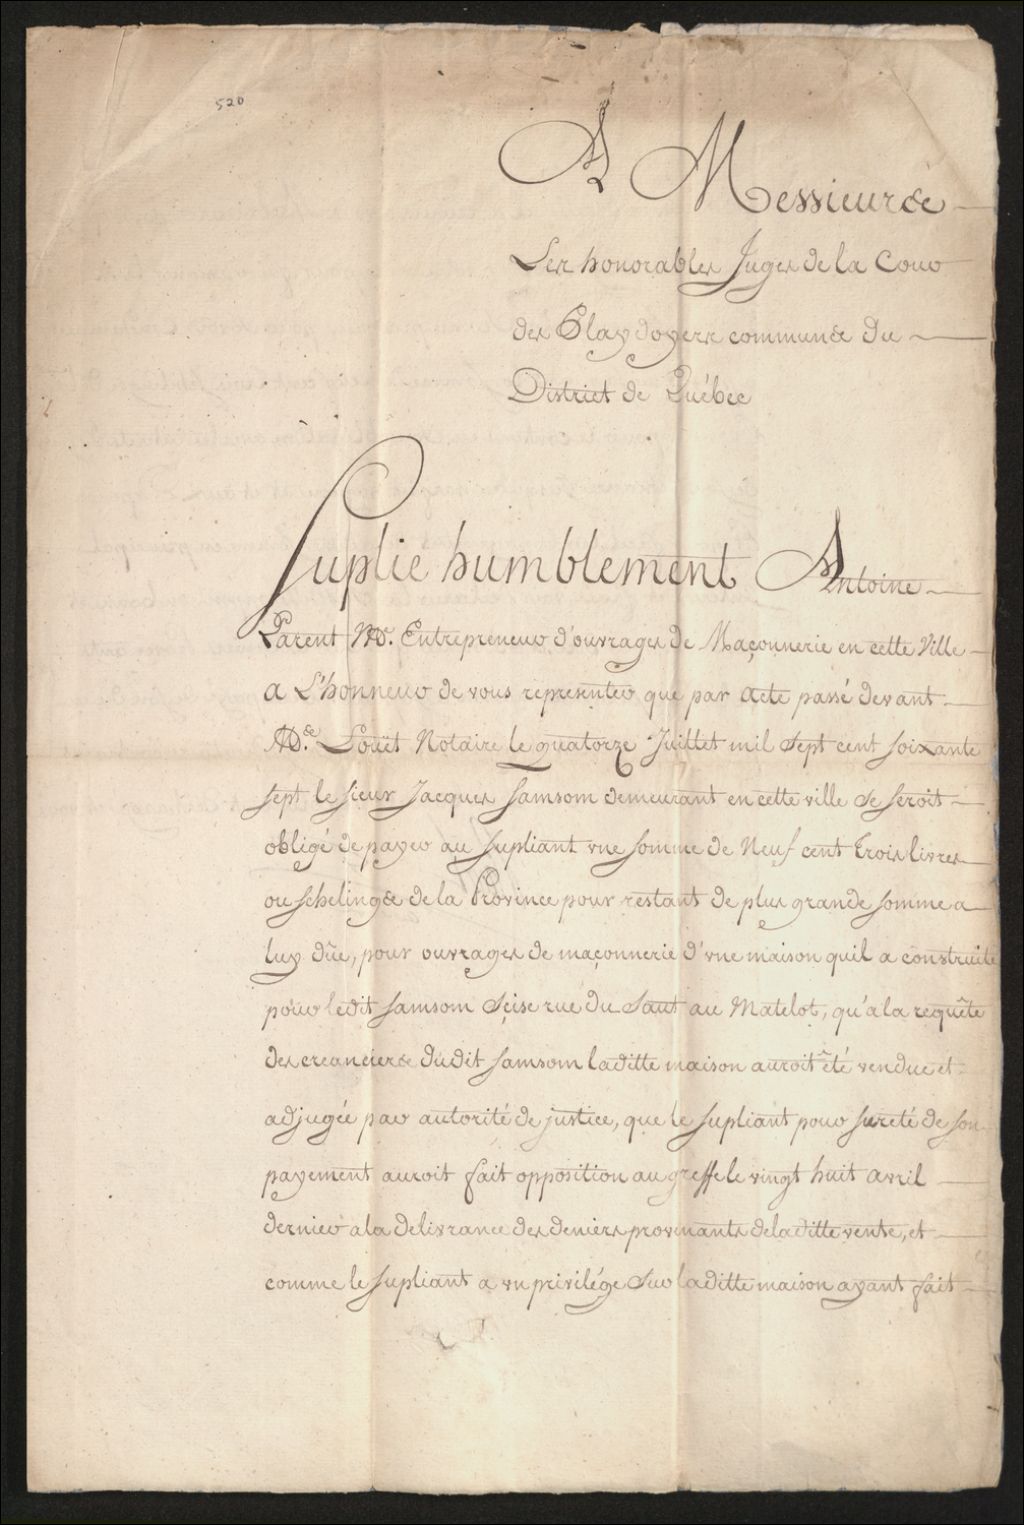 520
A Messieurs
Les honorables Juges de la Cour
des Playdoyers communs du
District de Québec
Suplie humblement Antoine
Parent Md. Entrepreneur d'ouvrages de Maçonnerie en cette Ville
a L'honneur de vous representer que par acte passé devant
Me. Loüet Notaire le quatorze Juillet mil sept cent soixante
sept le sieur Jacques Samsom demeurant en cette ville se seroit
obligé de payer au supliant vne somme de Neuf cent trois livres
ou schelings de la Province pour restant de plus grande somme a
luy dûe, pour ouvrages de maçonnerie d'vne maison quil a construite
pour ledit Samsom scise rue du Saut au Matelot, qu'a la requête
des creanciers dudit Samsom laditte maison auroit été vendue et
adjugée par autorité de justice, que le supliant pour sureté de son
payement auroit fait opposition au greffe le vingt huit avril
dernier a la delivrance des deniers provenants de laditte vente, et
comme le supliant a vn privilége sur laditte maison ayant fait